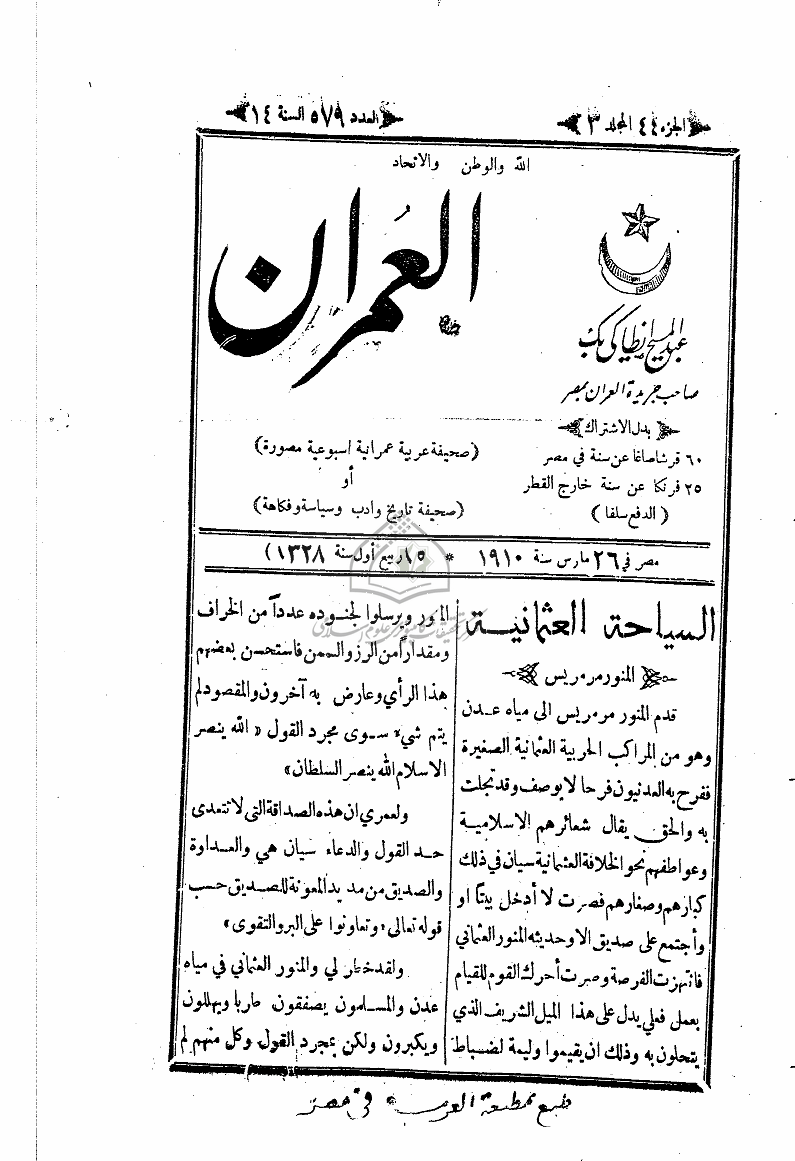 الجزء ٤٤ المجلد ٣
العدد ٥٧٩ السنة ١٤
الله والوطن والاتحاد
العمران
عبد المسيح انطاكي بك
صاحب جريدة العمران بمصر
بدل الاشتراك
٦٠ قرشاصاغا عن سنة في مصر
٢٥ فرنكا عن سنة خارج القطر
( الدفع سلفا )
(صحيفة عربية عمرانية اسبوعية مصورة)
أو
(صحيفة تاريخ وادب وسياسة وفكاهة)
مصر في ٢٦ مارس سنة ١٩١٠ * ١٥ ربيع أول سنة ١٣٢٨)
السياحة العثمانية
المنور مرمريس
قدم المنور مرمريس الى مياه عدن
وهو من المراكب الحربية العثمانية الصغيرة
ففرح به العدنيون فرحا لا يوصف وقد تجلت
به والحق يقال شعائرهم الاسلامية
وعواطفهم نحو الخلافة العثمانية سيان في ذلك
كبارهم وصغارهم فصرت لا أدخل بيتا او
وأجتمع على صديق الا وحديثه المنور العثماني
فانتهزت الفرصة وصرت أحرك القوم للقيام
بعمل فعلي يدل على هذا الميل الشريف الذي
يتحلون به وذلك ان يقيموا وليمة لضباط
المنور ويرسلوا لجنوده عدداً من الخراف
ومقداراً من الرز والسمن فاستحسن بعضهم
هذا الرأي وعارض به آخرون والمقصود لم
يتم شيء سوى مجرد القول « الله ينصر
الاسلام الله ينصر السلطان»
ولعمري ان هذه الصداقة التي لا تتعدى
حد القول والدعاء سيان هي والعداوة
والصديق من مد يد المعونة للصديق حسب
قوله تعالى «وتعاونوا على البر والتقوى»
ولقد خطر لي والمنور العثماني في مياه
عدن والمسلمون يصفقون طربا ويهللون
ويكبرون ولكن بمجرد القول وكل منهم لم
طبع بمطبعة العرب في مصر